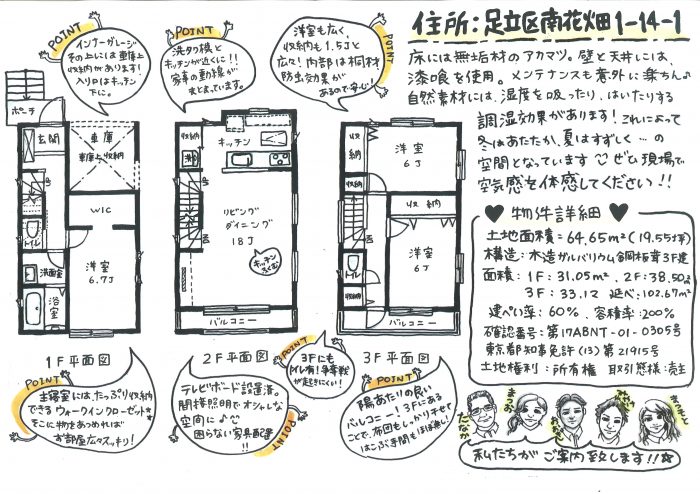 住所：足立区南花畑1-14-1
床には無垢材のアカマツ。壁と天井には、
漆喰を使用。メンテナンスも意外に楽ちん♪
自然素材には、湿度を吸ったり、はいたりする
調湿効果があります！これによって
冬はあたたか、夏はすずしく…の
空間となっています ぜひ現場で
空気感を体感してください！！
POINT
インナーガレージ
その上には車庫上
収納があります！
入り口はキッチン
下に。
POINT
洗タク機と
キッチンが近くに！！
家事の動線が
まとまっています。
POINT
洋室も広く、
収納も1.5Jと
広々！内部は桐材
防虫効果が
あるので安心！
ポーチ
玄関
車庫
車庫上収納
WIC
トイレ
洗面室
浴室
洋室
6.7J
1F平面図
収納
洗
キッチン
リビング
ダイニング
18J
キッチン
バルコニー
2F平面図
収納
洋室
6J
収納
収納
洋室
6J
トイレ
収納
バルコニー
3F平面図
♥ 物件詳細 ♥
土地面積＝64.65m²（19.55坪）
構造：木造ガルバリウム鋼板葺3F建
面積：1F：31.05m²、2F：38.50m²
3F：33.12 延べ：102.67m²
建ぺい率：60％ 容積率：200％
確認番号：第17ABNT-01-0305号
東京都知事免許（13）第21915号
土地権利：所有権 取引態様：売主
POINT
主寝室には、たっぷり収納
できるウォークインクローゼット★
そこに物をあつめれば
お部屋広々スッキリ！
テレビボード設置済。
間接照明でオシャレな
空間に♪
困らない家具配置！！
POINT
3Fにも
トイレ有！争奪戦
が起きにくい！
POINT
陽あたりの良い
バルコニー！3Fにある
ことで、布団もしっかり干せて
はこぶ手間もほぼ無し！
たなか
私たちがご案内致します！！☆